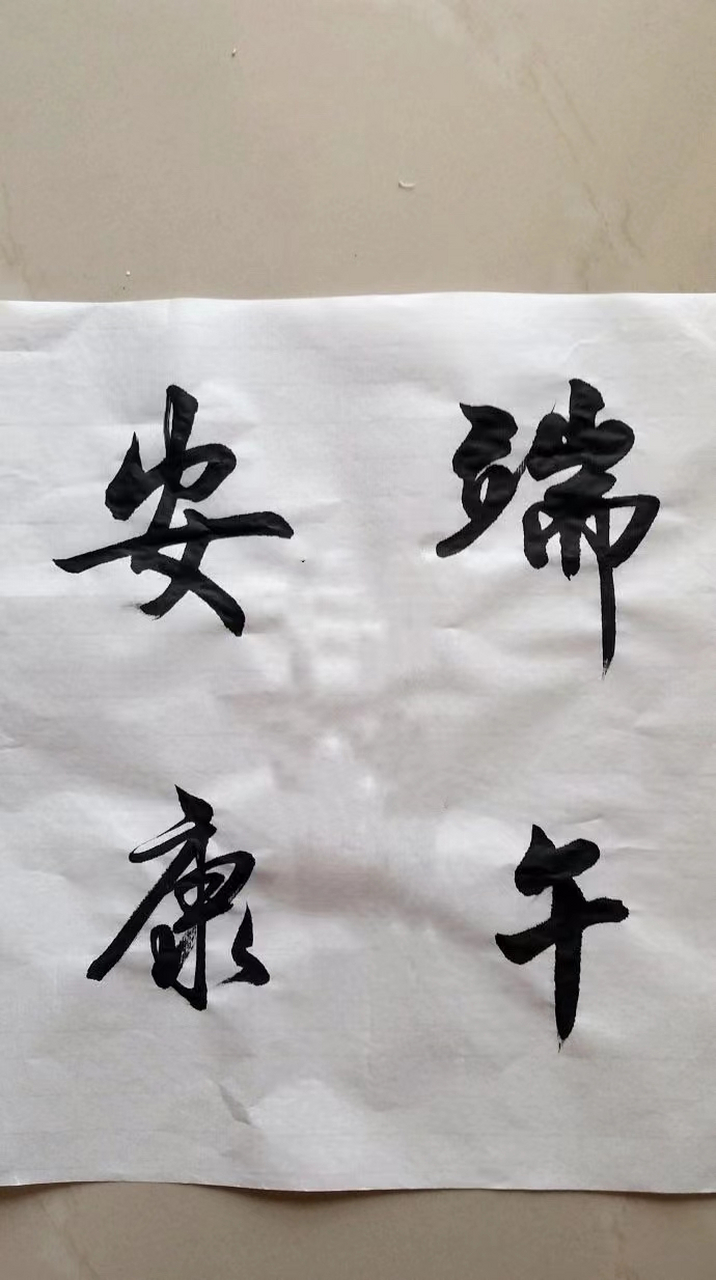 端午
安康